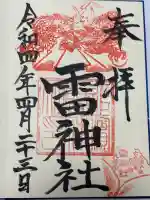 奉拝
雷神社
令和四年四月二十三日